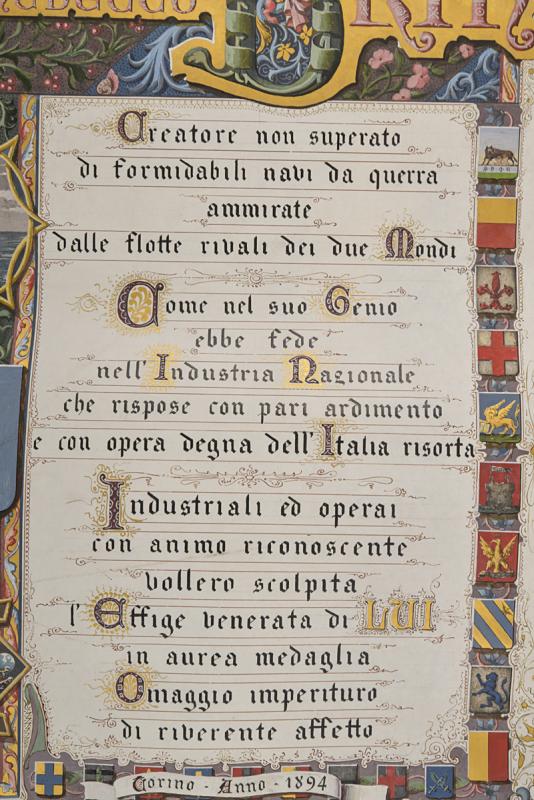 Creatore non superato
di formidabili navi da guerra
ammirate
dalle flotte rivali dei due Mondi
Come nel suo Genio
ebbe fede
nell'Industria Nazionale
che rispose con pari ardimento
e con opera degna dell'Italia risorta
Industriali ed operai
con animo riconoscente
vollero scolpita
l'Effige venerata di LUI
in aurea medaglia
Omaggio imperituro
di riverente affetto
Torino - Anno - 1894